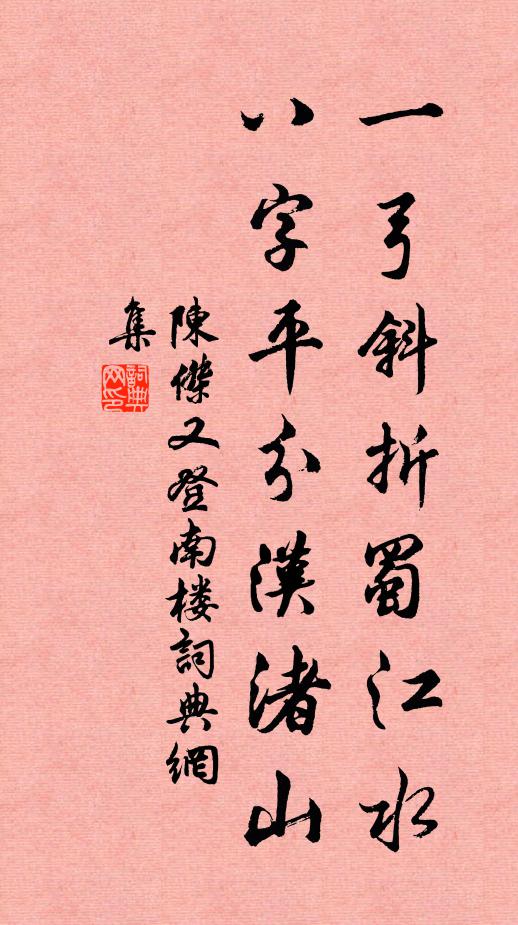 一弓斜折蜀江水
八字平分漢渚山
陳傑又登南楼詞典網
集
詞典
网印